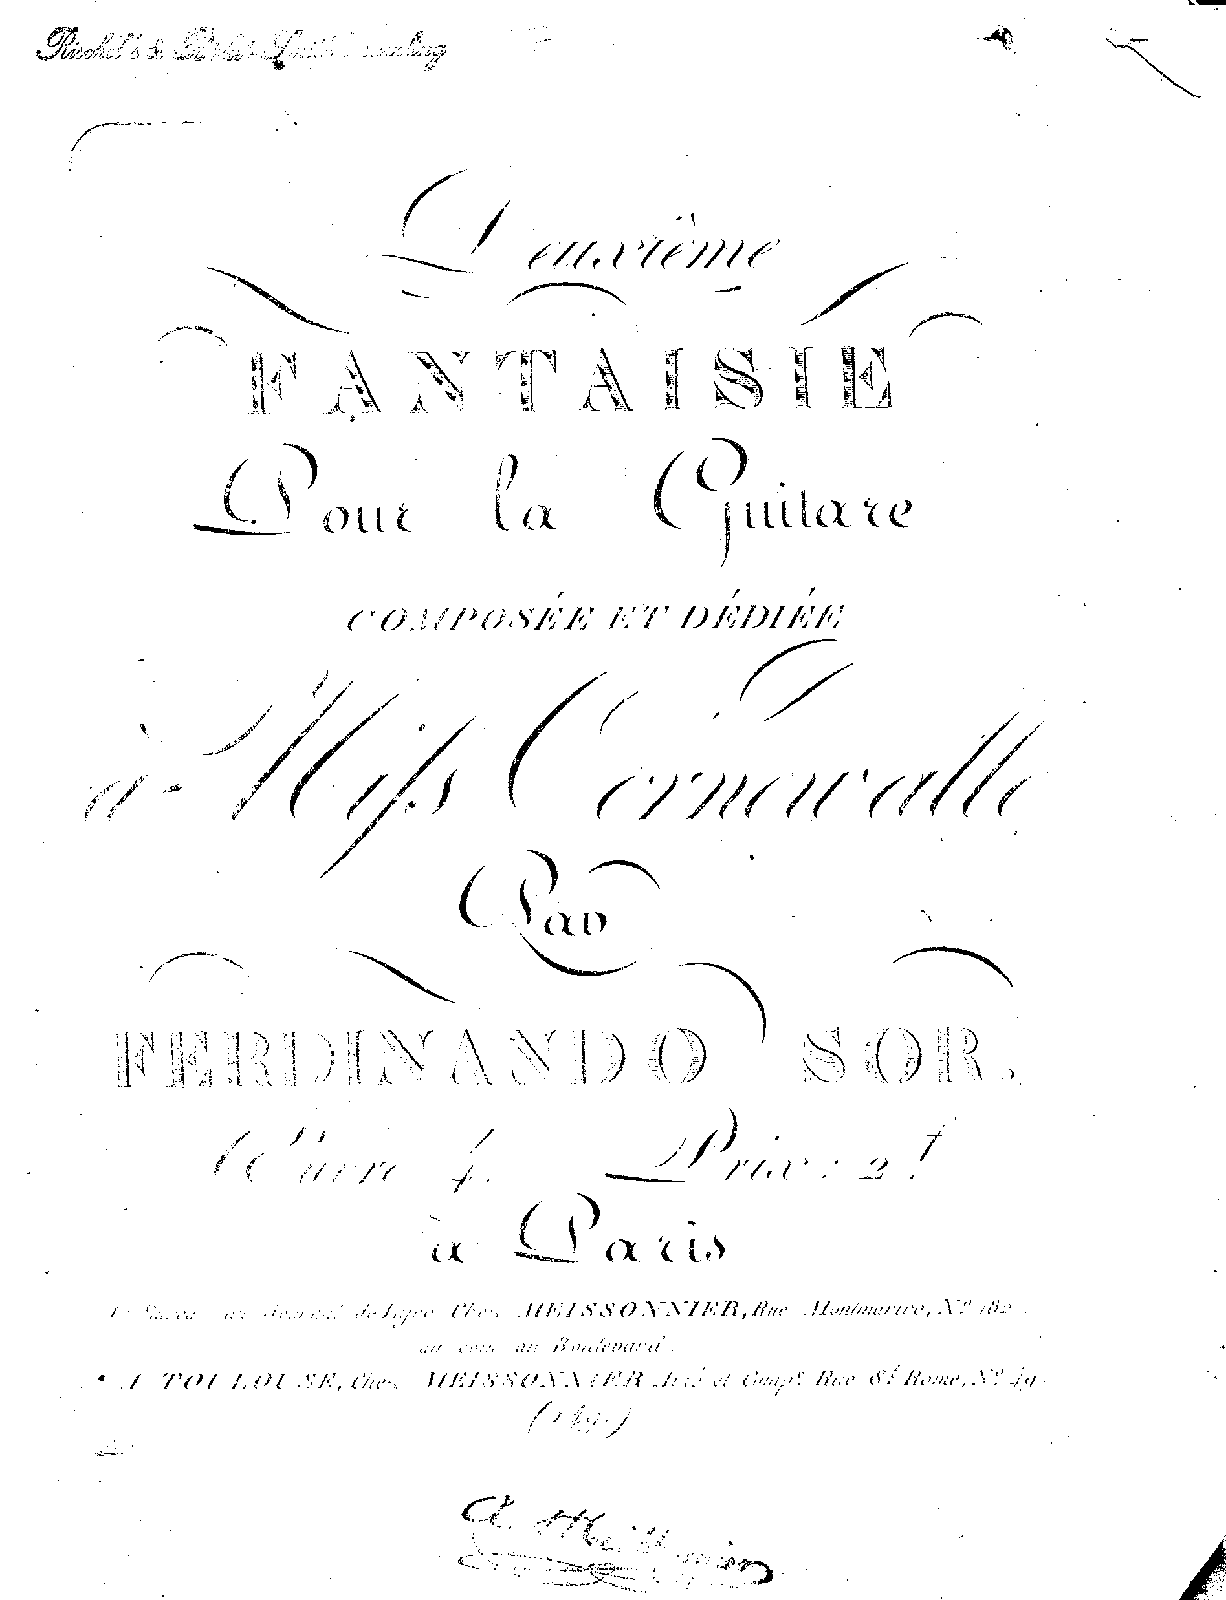 Deuxième
FANTAISIE
Pour la Guitare
COMPOSÉE ET DÉDIÉE
à Miss Cornewalle
Par
FERDINANDO SOR.
Œuvre 4. Prix: 2.f
à Paris
au Journal de Lyre Chez MEISSONNIER, Rue Montmartre, No. 182.
au coin du Boulevard.
A TOULOUSE, Chez MEISSONNIER et Comp.e Rue St Rome, No. 49.
A. Meissonnier